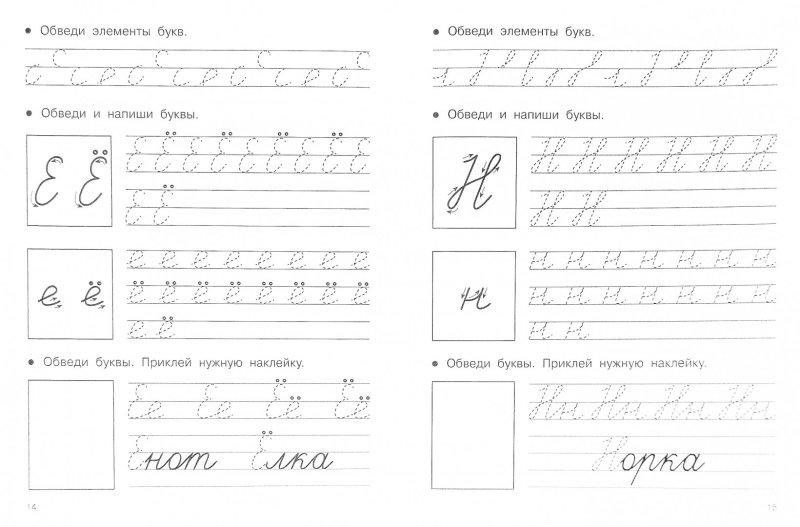 Обведи элементы букв.
Обведи и напиши буквы.
Е Ё
Е Ё Е Ё Е Ё Е Ё Е
Е Ё
е ё
е е е е е е е е
ё ё ё ё ё ё ё ё
е ё
Обведи буквы. Приклей нужную наклейку.
Ее Ее Ёё Ёё
Енот Ёлка
14
Обведи элементы букв.
Обведи и напиши буквы.
Н
Н Н Н Н Н Н Н
Н Н
н
н н н н н н н н
н н н н н н н н
н н
Обведи буквы. Приклей нужную наклейку.
Нн Нн Нн Нн
Норка
15